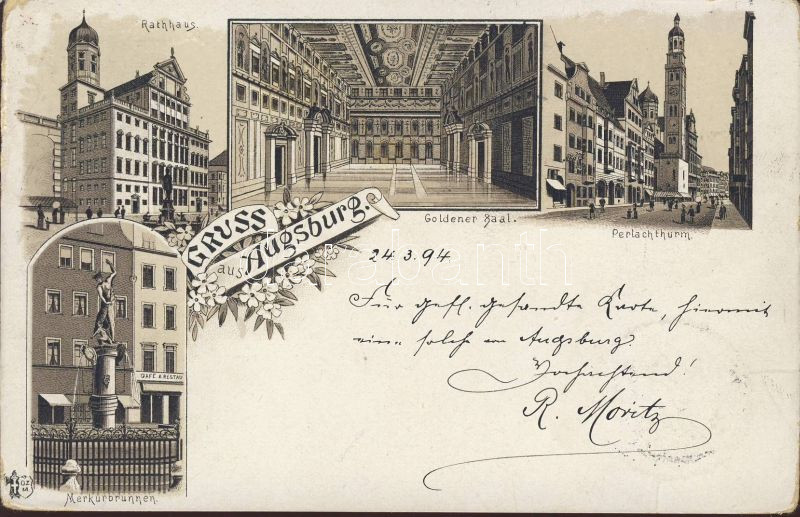 Rathhaus.
Goldener Saal.
Perlachthurm.
GRUSS
aus
Augsburg.
24.3.94
Für gefl. gesandte Karte, hiermit
eine solche von Augsburg.
Hochachtend!
R. Moritz
CAFÉ & RESTAU
Merkurbrunnen.